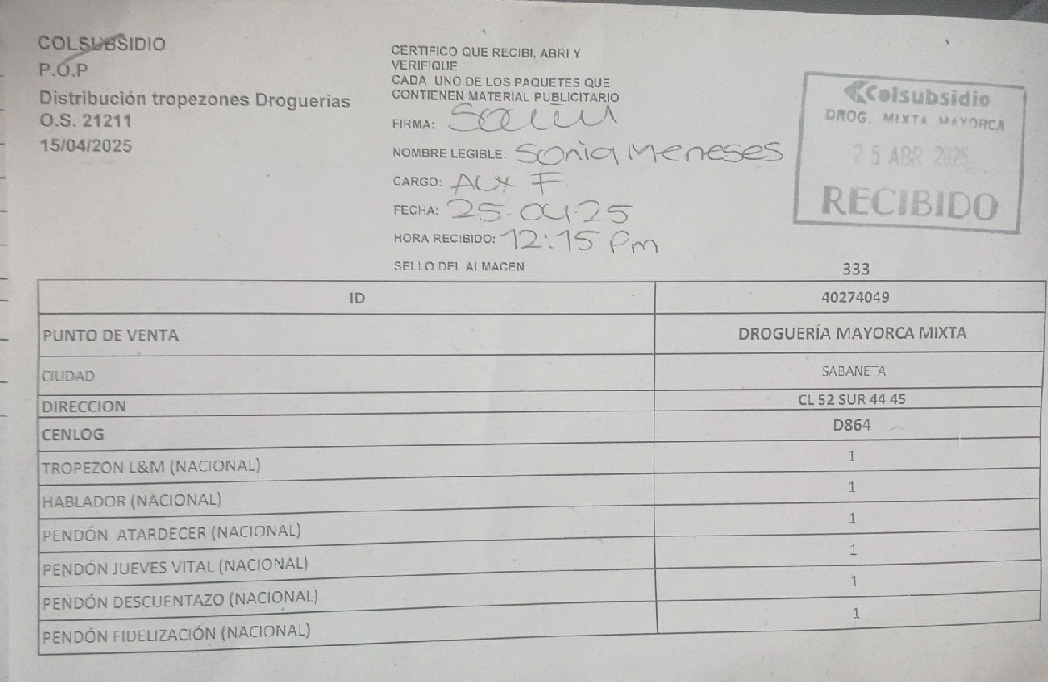 COLSUBSIDIO
P.O.P
Distribución tropezones Droguerias
O.S. 21211
15/04/2025
CERTIFICO QUE RECIBI, ABRI Y
VERIFIQUE
CADA UNO DE LOS PAQUETES QUE
CONTIENEN MATERIAL PUBLICITARIO
FIRMA:
NOMBRE LEGIBLE: Sonia Meneses
CARGO: Aux F
FECHA: 25-04-25
HORA RECIBIDO: 12:15 pm
SELLO DEL ALMACEN
Colsubsidio
DROG. MIXTA MAYORCA
25 ABR 2025
RECIBIDO
333
ID 40274049
PUNTO DE VENTA DROGUERÍA MAYORCA MIXTA
CIUDAD SABANETA
DIRECCION CL 52 SUR 44 45
CENLOG D864
TROPEZON L&M (NACIONAL) 1
HABLADOR (NACIONAL) 1
PENDÓN ATARDECER (NACIONAL) 1
PENDÓN JUEVES VITAL (NACIONAL) 1
PENDÓN DESCUENTAZO (NACIONAL) 1
PENDÓN FIDELIZACIÓN (NACIONAL) 1